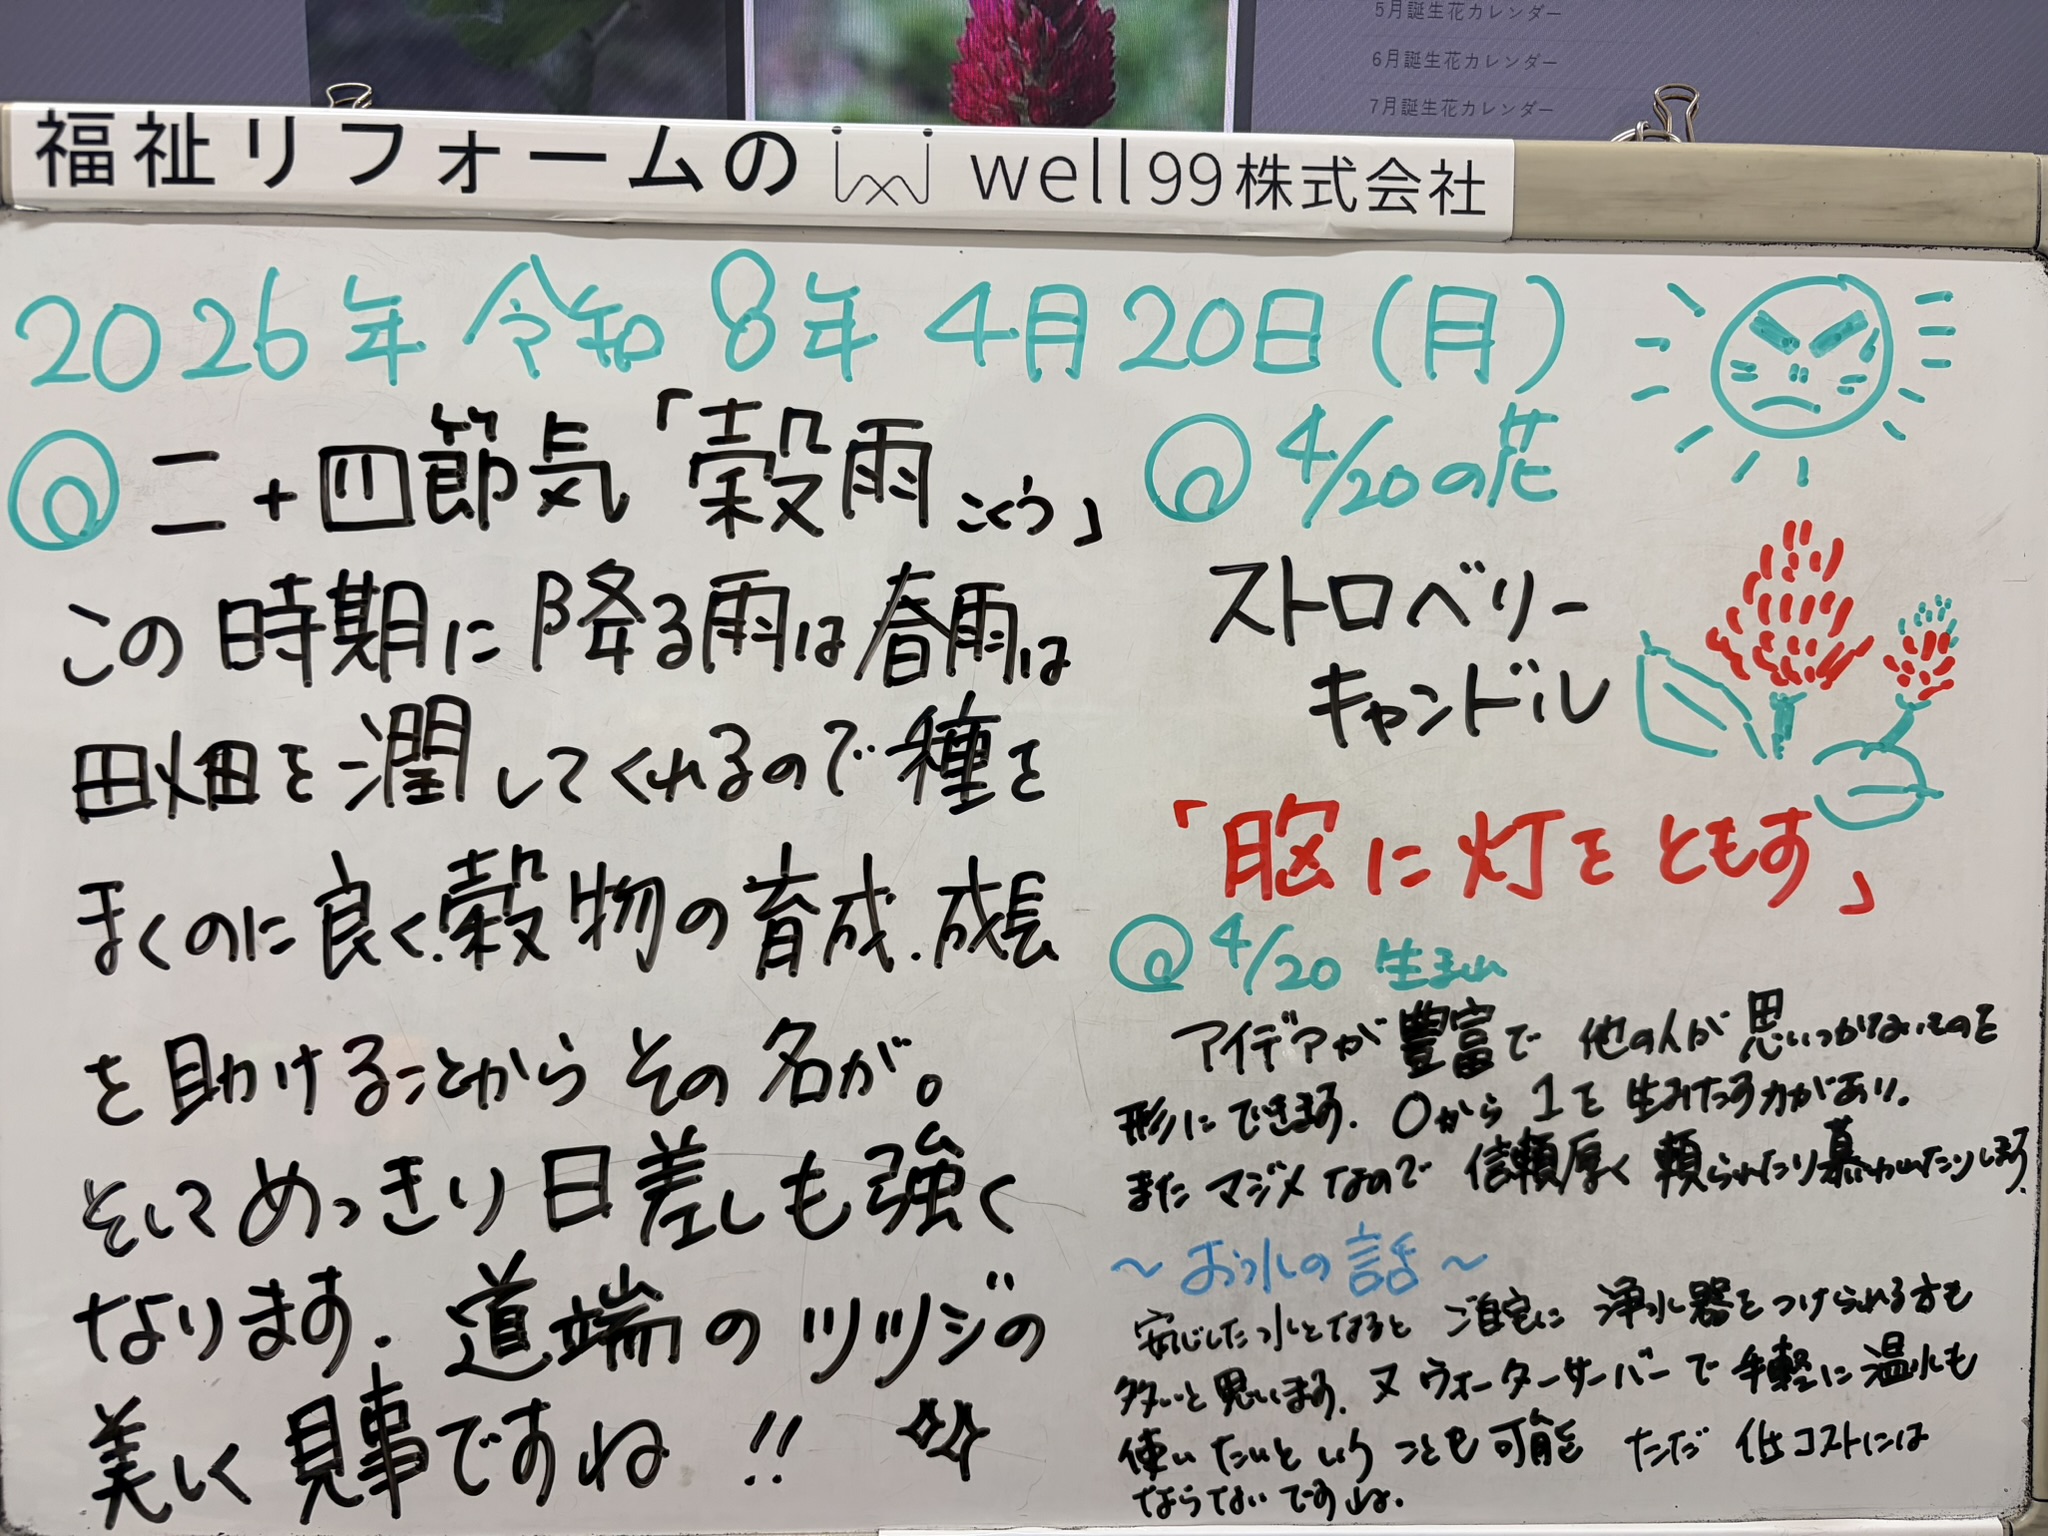 5月誕生花カレンダー
6月誕生花カレンダー
7月誕生花カレンダー
福祉リフォームの well99株式会社
2026年 令和8年 4月20日(月)
二十四節気「穀雨こくう」
この時期に降る雨は春雨は
田畑を潤してくれるので種を
まくのに良く.穀物の育成.成長
を助けることからその名が。
そしてめっきり日差しも強く
なります.道端のツツジの
美しく見事ですね!!
4/20の花
ストロベリー
キャンドル
「胸に灯をともす」
4/20 生まれ
アイデアが豊富で他の人が思いつかないものを
形にできます.0から1を生みだす力があり.
またマジメなので信頼厚く頼られたり慕われたりします.
～お水の話～
安心した水となるとご自宅に浄水器をつけられる方も
多いと思います.又ウォーターサーバーで手軽に温水も
使いたいということも可能 ただ低コストには
ならないですね.